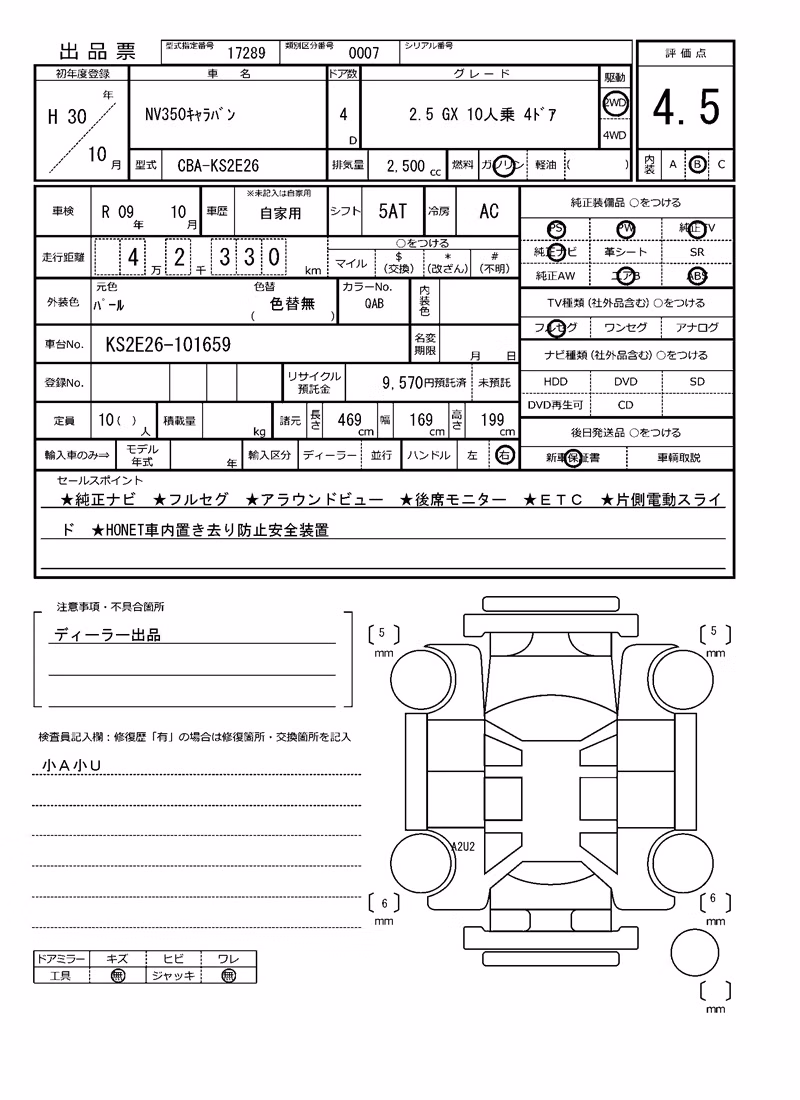 出品票 型式指定番号 17289 類別区分番号 0007 シリアル番号
評価点
4.5
内装 A B C
初年度登録 車名 ドア数 グレード 駆動
H 30 年 10 月 NV350ｷｬﾗﾊﾞﾝ 4 D 2.5 GX 10人乗 4ﾄﾞｱ 2WD
4WD
型式 CBA-KS2E26 排気量 2,500 cc 燃料 ガソリン 軽油 ( )
車検 R 09 年 10 月 車歴 ※未記入は自家用 自家用 シフト 5AT 冷房 AC
走行距離 4 万 2 千 3 3 0 km ○をつける
マイル $(交換) *(改ざん) #(不明)
外装色 元色 ﾊﾟｰﾙ 色替 色替無 ( ) カラーNo. QAB 内装色
車台No. KS2E26-101659 名変期限 月 日
登録No. リサイクル預託金 9,570円預託済 未預託
定員 10( ) 人 積載量 kg 諸元 長さ 469 cm 幅 169 cm 高さ 199 cm
輸入車のみ⇒ モデル年式 年 輸入区分 ディーラー 並行 ハンドル 左 右
純正装備品 ○をつける
PS PW 純正TV
純正ナビ 革シート SR
純正AW エアB ABS
TV種類(社外品含む) ○をつける
フルセグ ワンセグ アナログ
ナビ種類(社外品含む) ○をつける
HDD DVD SD
DVD再生可 CD
後日発送品 ○をつける
新車保証書 車輌取説
セールスポイント
★純正ナビ ★フルセグ ★アラウンドビュー ★後席モニター ★ETC ★片側電動スライ
ド ★HONET車内置き去り防止安全装置
注意事項・不具合箇所
ディーラー出品
検査員記入欄：修復歴「有」の場合は修復箇所・交換箇所を記入
小A小U
ドアミラー キズ ヒビ ワレ
工具 無 ジャッキ 無
5 mm
5 mm
A2U2
6 mm
6 mm
mm